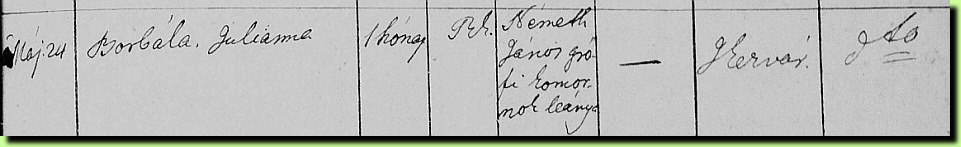 Máj. 24 Borbála, Julianna 1 hónap R. k. Németh
János gró-
fi komor-
nok leánya
— Hervár. dto